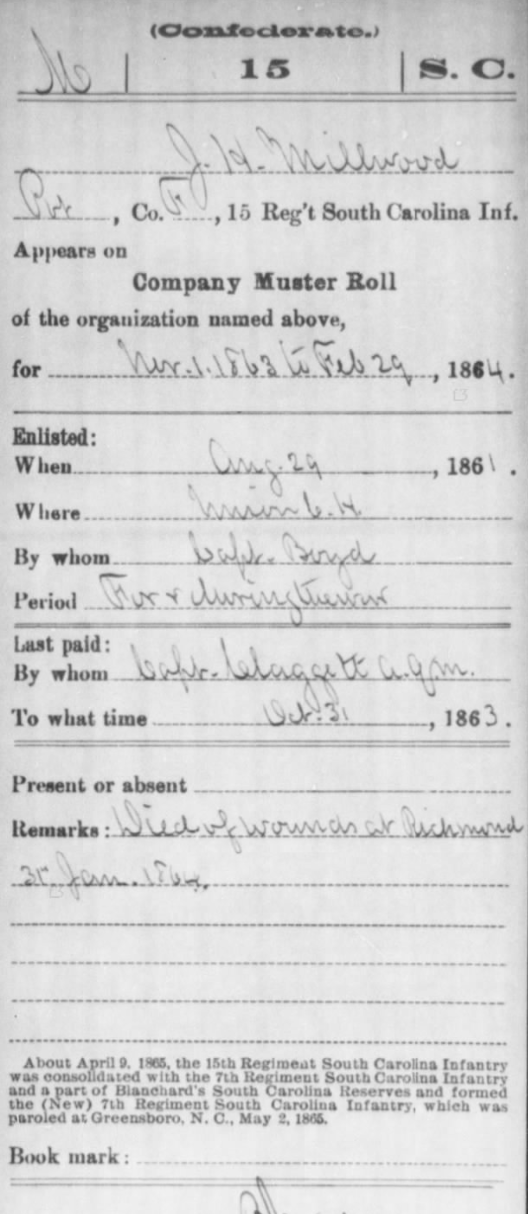 (Confederate.)
M | 15 | S. C.
J. H. Millwood
Pvt, Co. F, 15 Reg't South Carolina Inf.
Appears on
Company Muster Roll
of the organization named above,
for Nov. 1. 1863 to Feb 29, 1864.
Enlisted:
When Aug. 29, 1861.
Where Union C. H.
By whom Capt. Boyd
Period For & during the war
Last paid:
By whom Capt. Claggett A.Q.M.
To what time Oct. 31, 1863.
Present or absent
Remarks: Died of wounds at Richmond
Jan. 1864.
About April 9, 1865, the 15th Regiment South Carolina Infantry
was consolidated with the 7th Regiment South Carolina Infantry
and a part of Blanchard's South Carolina Reserves and formed
the (New) 7th Regiment South Carolina Infantry, which was
paroled at Greensboro, N. C., May 2, 1865.
Book mark: